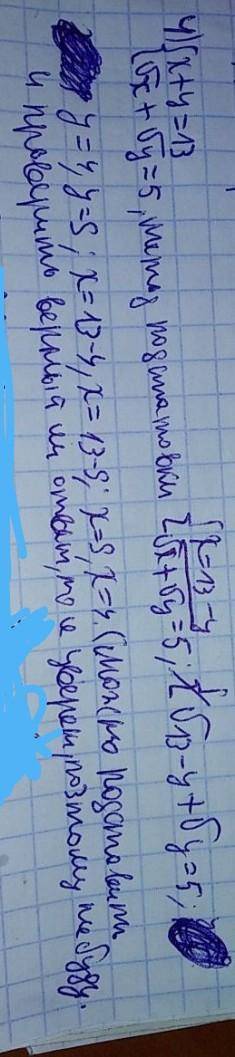 4) { x+y=13
{ √x + √y = 5, метод подстановки { x=13-y
{ √x + √y = 5; { √13-y + √y = 5;
y=4, y=9; x=13-4, x=13-9; x=9, x=4. (Можно подставить
и проверить верный ли ответ, но я уверен, поэтому не буду.